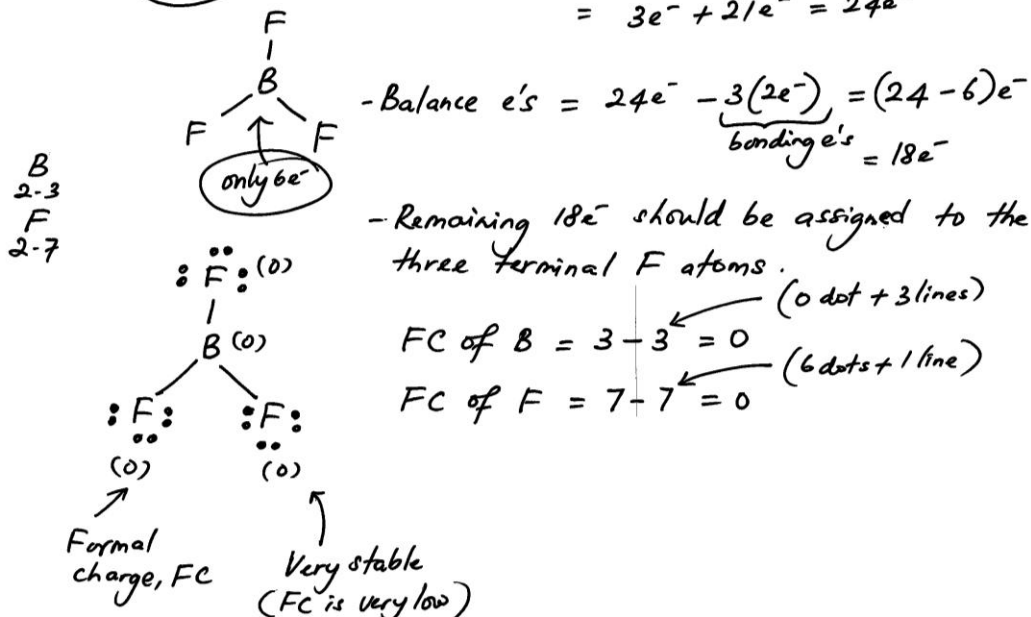 = 3e⁻ + 21e⁻ = 24e
F
B
F F
only 6e⁻
B
2-3
F
2-7
- Balance e's = 24e⁻ - 3(2e⁻) = (24 - 6)e⁻
bonding e's = 18e⁻
- Remaining 18e⁻ should be assigned to the
three terminal F atoms.
(0 dot + 3 lines)
FC of B = 3 - 3 = 0
(6 dots + 1 line)
FC of F = 7 - 7 = 0
:F: (0)
B (0)
:F: :F:
(0) (0)
Formal
charge, FC
Very stable
(FC is very low)